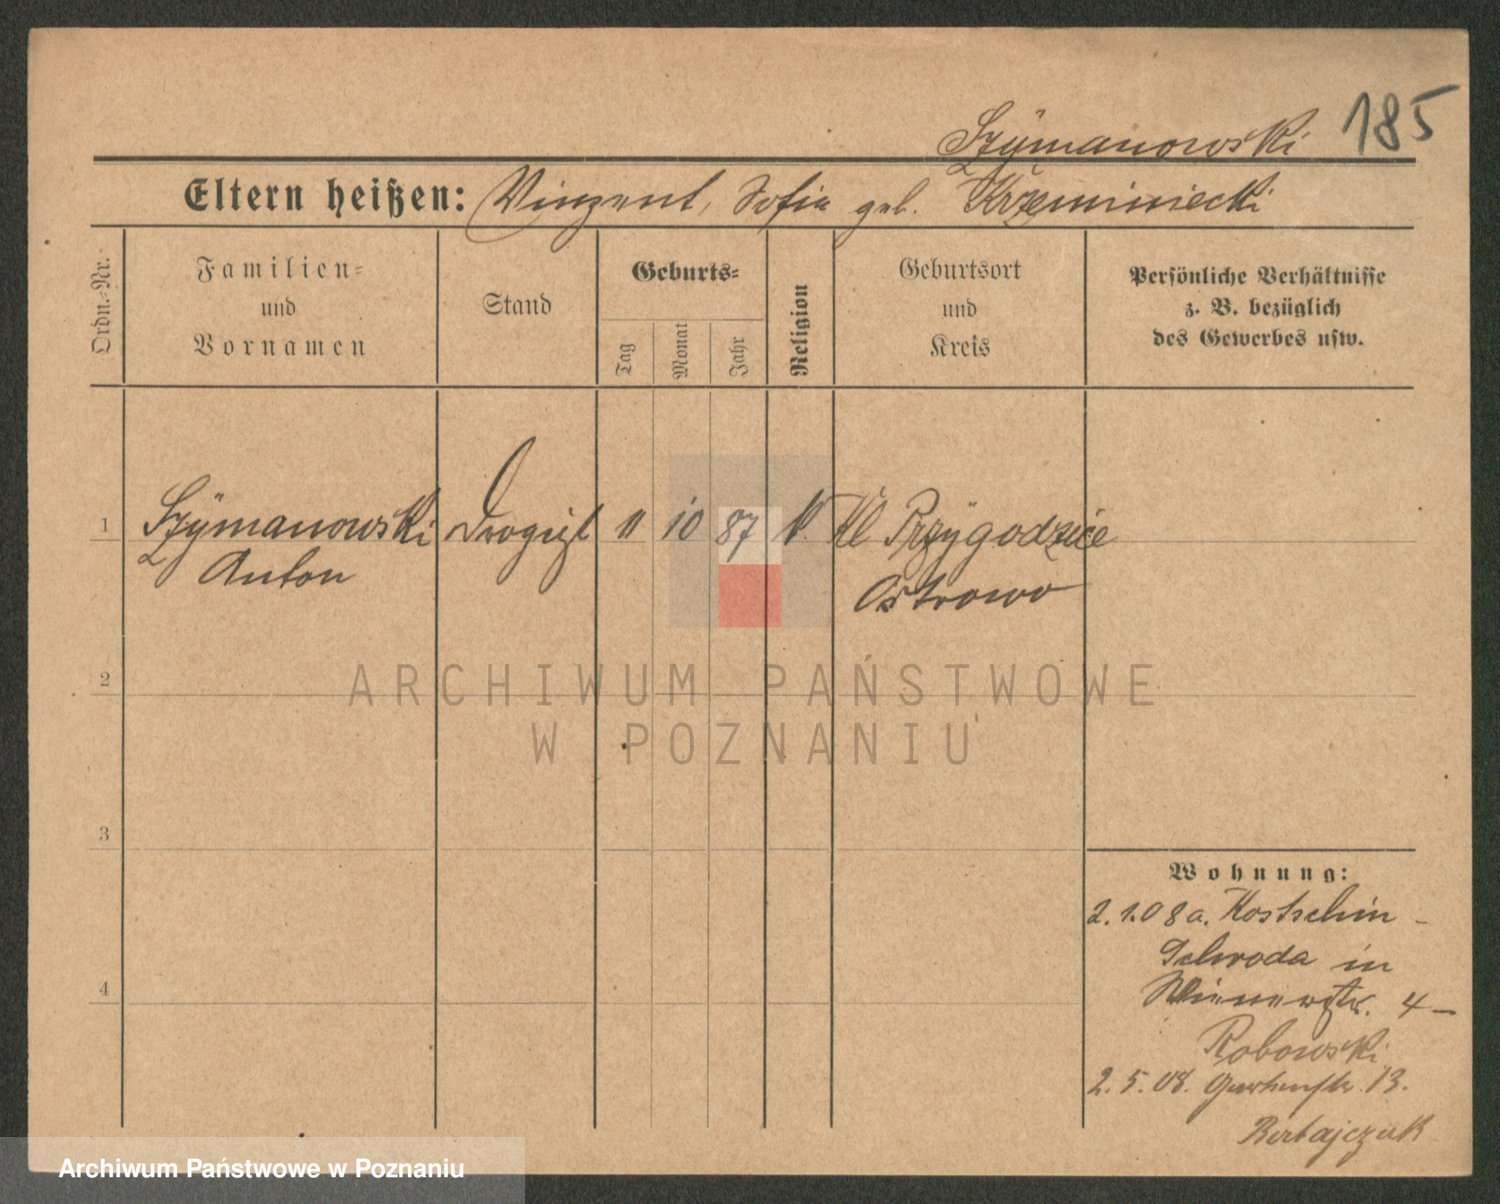 185
Szymanowski
Eltern heißen: Vinzent, Sofia geb. Krzeminiecki
Ordn.-Nr.
Familien-
und
Vornamen
Stand
Geburts-
Tag
Monat
Jahr
Religion
Geburtsort
und
Kreis
Persönliche Verhältnisse
z. B. bezüglich
des Gewerbes usw.
1 Szymanowski Drogist 11 10 87 K. Kl Przygodzice
Anton Ostrowo
2
3
4
Wohnung:
2. 1. 08 a. Kostschin -
Schroda in
Wienerstr. 4 -
Robowski
2. 5. 08. Gartenstr. 13.
Bartajczak
ARCHIWUM PAŃSTWOWE
W POZNANIU
Archiwum Państwowe w Poznaniu